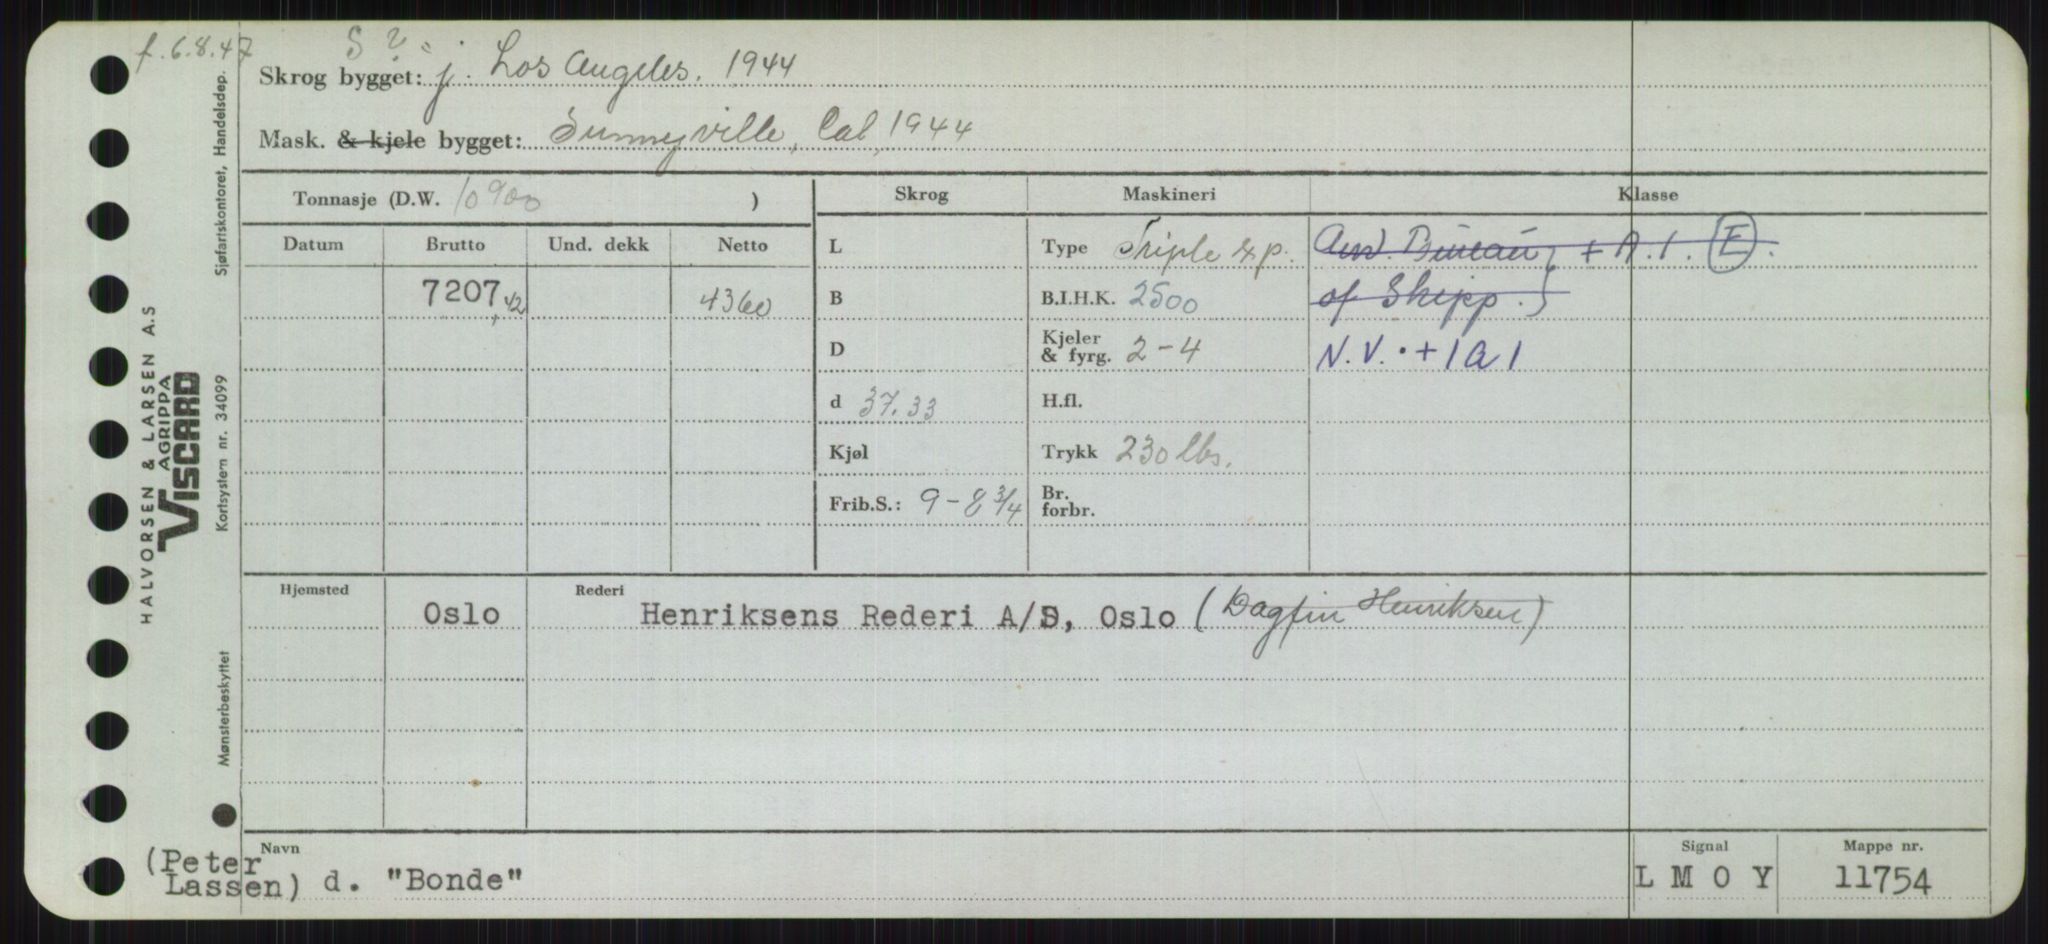 f. 6.8.47
Skrog bygget: j. Los Angeles. 1944
Mask. & kjele bygget: Sunnyville, Cal, 1944
Tonnasje (D.W. 10900 )
Skrog Maskineri Klasse
Datum Brutto Und. dekk Netto
L Type Triple exp. Am. Bureau } + A.1. (E).
7207,42 4360
B B.I.H.K. 2500 of Shipp. }
D Kjeler & fyrg. 2-4 N.V. + 1 A 1
d 37.33 H.fl.
Kjøl Trykk 230 lbs.
Frib.S.: 9-8 3/4 Br. forbr.
Hjemsted Rederi
Oslo Henriksens Rederi A/S, Oslo (Dagfin Henriksen)
Navn Signal Mappe nr.
(Peter
Lassen) d. "Bonde" L M O Y 11754
HALVORSEN & LARSEN A.S
AGRIPPA
VISCARD
Sjøfartskontoret, Handelsdep.
Kortsystem nr. 34099
Mønsterbeskyttet